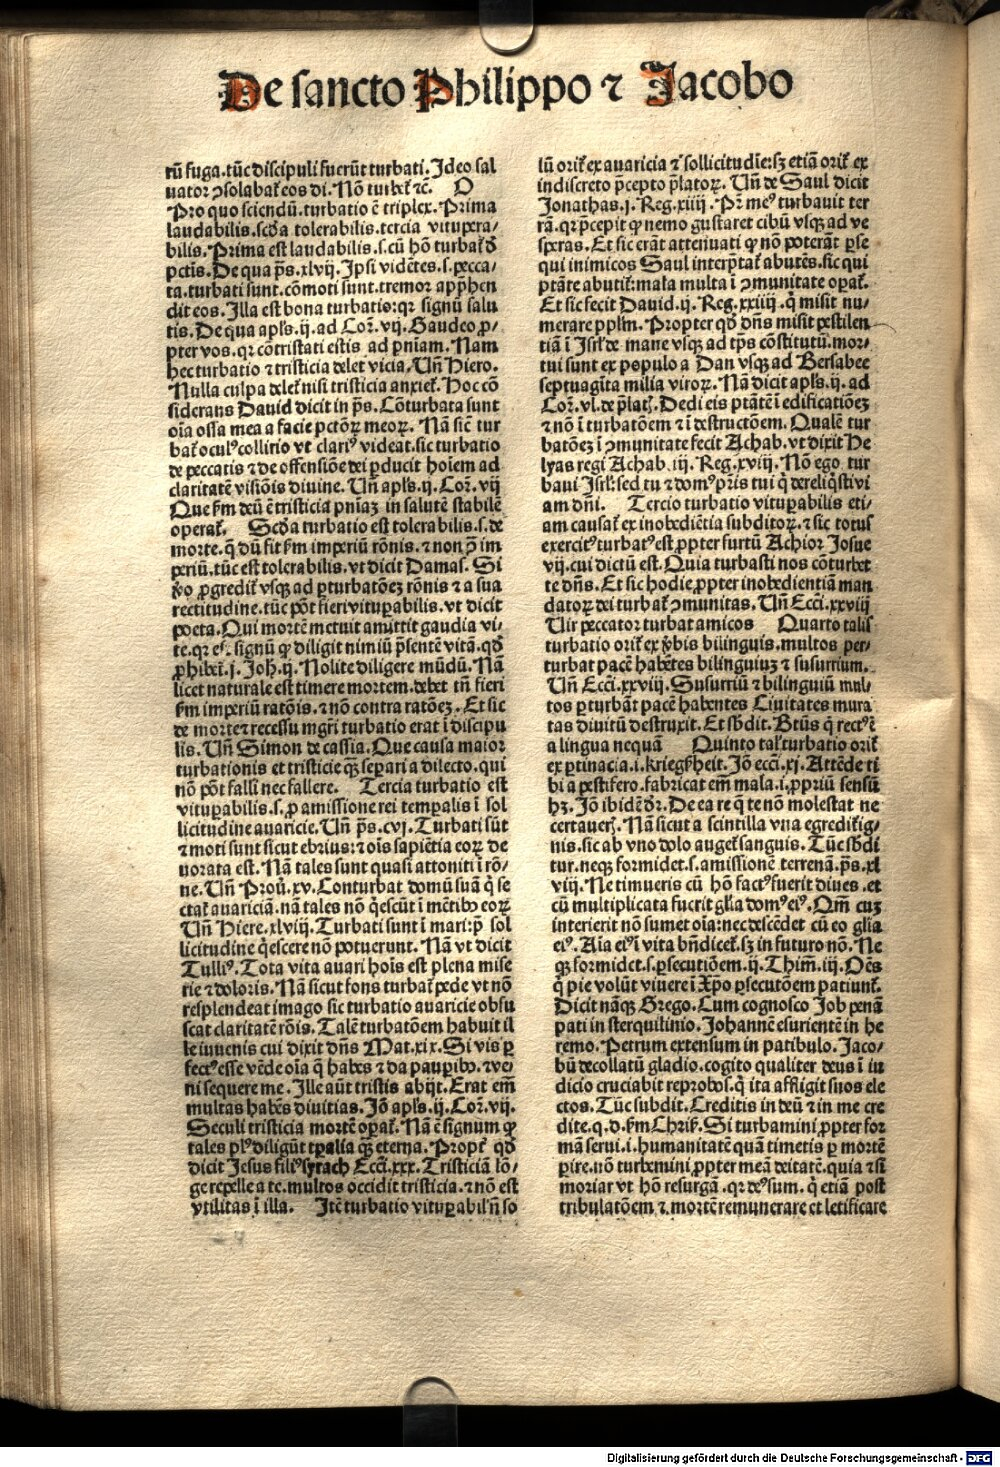 De sancto Philippo ⁊ Jacobo
rū fuga.tūc discipuli fuerūt turbati.Ideo sal
uator ꝯsolabat̄ eos di.Nō turbet̄ ⁊c̄. O
Pro quo sciendū.turbatio ē triplex.Prima
laudabilis.scd̄a tolerabilis.tercia vitupera/
bilis.Prima est laudabilis.s.cū hō turbat̄ d̄
pctis.De qua ps̄.xlvij.Ipsi vidētes.s.pecca/
ta.turbati sunt.cōmoti sunt.tremor app̄hen
dit eos.Illa est bona turbatio:qr signū salu
tis.De qua apl's.ij.ad Cor̄.vij.Gaudeo ꝓ/
pter vos.qr cōtristati estis ad pn̄iam.Nam
hec turbatio ⁊ tristicia delet vicia.Un̄ Hiero.
Nulla culpa delet̄ nisi tristicia anxiet̄.Hoc cō
siderans David dicit in ps̄.Cōturbata sunt
oīa ossa mea a facie pctōꝝ meoꝝ.Nā sic̄ tur
bat̄ oculꝰ collirio vt clariꝰ videat.sic turbatio
de peccatis ⁊ de offensiōe dei ꝑducit hoīem ad
claritatē visiōis divine.Un̄ apl's.ij.Cor̄.vij
Que ẜm deū ē tristicia pn̄iaꝫ in salutē stabilē
operat̄. Scd̄a turbatio est tolerabilis.s.de
morte.q̄ dū fit ẜm imperiū rōnis.⁊ non p̄ im
periū.tūc est tolerabilis.vt dicit Damas.Si
v̄o ꝓgredit̄ vsqꝫ ad ꝑturbatōeꝫ rōnis ⁊ a sua
rectitudine.tūc pōt fieri vituꝑabilis.vt dicit
poeta.Qui mortē metuit amittit gaudia vi/
te.qr ē signū ꝙ diligit nimiū p̄sentē vitā.qd̄
ꝓhibet̄.j.Joh.ij.Nolite diligere mūdū.Nā
licet naturale est timere mortem.debet tn̄ fieri
ẜm imperiū ratōis.⁊ nō contra ratōeꝫ.Et sic
de morte ⁊ recessu mgr̄i turbatio erat ī discipu
lis.Un̄ Simon de cassia.Que causa maior
turbationis et tristicie qꝫ separi a dilecto.qui
nō pōt falli nec fallere. Tercia turbatio est
vituꝑabilis.s.ꝓ amissione rei tempalis ī sol
licitudine avaricie.Un̄ ps̄.cvj.Turbati sūt
⁊ moti sunt sicut ebrius:⁊ oīs sapiētia eoꝝ de
uorata est.Nā tales sunt quasi attoniti ī rō/
ne.Un̄ Prov̄.xv.Conturbat domū suā q̄ se
ctat̄ auariciā.nā tales nō q̄escūt ī mētibꝰ eoꝝ
Un̄ Hiere.xlviij.Turbati sunt ī mari:p̄ sol
licitudine q̄escere nō potuerunt.Nā vt dicit
Tulliꝰ.Tota vita auari hoīs est plena mise
rie ⁊ doloris.Nā sicut fons turbat̄ pede vt nō
resplendeat imago sic turbatio auaricie obfu
scat claritatē rōis.Talē turbatōem habuit il
le iuuenis cui dixit dn̄s Mat.xix.Si vis ꝑ
fectꝰ esse vēde oīa q̄ habes ⁊ da pauꝑibꝰ.⁊ ve/
ni sequere me.Ille aūt tristis abijt.Erat em̄
multas habēs diuitias.Jō apl's.ij.Cor̄.vij.
Seculi tristicia mortē oꝑat̄.Nā ē signum ꝙ
tales plꝰ diligūt tp̄alia qꝫ eterna.Propt̄ qd̄
dicit Jesus filiꝰ syrach Eccī.xxx.Tristiciā lō/
ge repelle a te.multos occidit tristicia.⁊ nō est
vtilitas ī illa. Itē turbatio vituꝑabil' n̄ so
lū orit̄ ex auaricia ⁊ sollicitudīe:sꝫ etiā orit̄ ex
indiscreto p̄cepto p̄latoꝝ.Un̄ de Saul dicit
Jonathas.j.Reg.xiiij.Pr̄ meꝰ turbauit ter
rā.qr p̄cepit ꝙ nemo gustaret cibū vsqꝫ ad ve
speras.Et sic erāt attenuati ꝙ nō poterāt ꝑse
qui inimicos Saul interp̄tat̄ abutēs.sic qui
ptāte abutit̄:mala multa ī ꝯmunitate oꝑat̄.
Et sic fecit David.ij.Reg.xxiiij.q̄ misit nu/
merare ppl'm.Propter qd̄ dn̄s misit pestilen
tiā ī Isrl' de mane vsqꝫ ad tp̄s cōstitutū.mor/
tui sunt ex populo a Dan vsqꝫ ad Bersabee
septuagīta milia viroꝝ.Nā dicit apl's.ij.ad
Cor̄.vl.de p̄lat̄.Dedi eis ptātē ī edificatiōeꝫ
⁊ nō ī turbatōem ⁊ ī destructōem.Qualē tur
batōeꝫ ī ꝯmunitate fecit Achab.vt dixit He
lyas regi Achab.iij.Reg.xviij.Nō ego tur
baui Isrl':sed tu ⁊ domꝰ pr̄is tui q̄ dereliq̄stivi
am dn̄i. Tercio turbatio vituꝑabilis eti/
am causat̄ ex inobediētia subditoꝝ.⁊ sic totus
exercitꝰ turbatꝰ est ꝓpter furtū Achior Josue
vij.cui dictū est.Quia turbasti nos cōturbet
te dn̄s.Et sic hodie ꝓpter inobedientiā man
datoꝝ dei turbat̄ ꝯmunitas.Un̄ Eccī.xxviij
Uir peccator turbat amicos Quarto talis
turbatio orit̄ ex v̄bis bilinguis.multos per/
turbat pacē habētes bilinguiuꝫ ⁊ susurrium.
Un̄ Eccī.xxviij.Susurriū ⁊ bilinguiū mul/
tos ꝑturbāt pacē habentes Ciuitates mura
tas divitū destruxit.Et sb̄dit.Btūs q̄ rectꝰ ē
a lingua nequā Quinto tal' turbatio orit̄
ex ꝑtinacia.i.kriegk̄heit.Jō eccī.xj.Attēde ti
bi a pestifero.fabricat em̄ mala.i.ꝓpriū sensū
hꝫ.Jō ibidē dr̄.De ea re q̄ te nō molestat ne
certauer̄.Nā sicut a scintilla vna egredit̄ ig/
nis.sic ab vno dolo auget̄ sanguis.Tūc sb̄di
tur.neqꝫ formidet.s.amissionē terrenā.ps̄.xl
viij.Ne timueris cū hō factꝰ fuerit diues.et
cū multiplicata fuerit gl'ia domꝰ eiꝰ.Qm̄ cuꝫ
interierit nō sumet oīa:nec descēdet cū eo gl'ia
eiꝰ.Aīa eiꝰ ī vita bn̄dicet̄.sꝫ in futuro nō.Ne
qꝫ formidet.s.ꝑsecutiōem.ij.Thim̄.iij.Oēs
q̄ pie volūt viuere ī Xp̄o ꝑsecutōem patiunt̄.
Dicit nāqꝫ Grego.Cum cognosco Job penā
pati in sterquilinio.Johannē esurientē in he
remo.Petrum extensum in patibulo.Jaco/
bū decollatū gladio.cogito qualiter deus ī iu
dicio cruciabit reprobos.q̄ ita affligit suos ele
ctos.Tūc subdit.Creditis in deū ⁊ in me cre
dite.q.d.ẜm Chris̄.Si turbamini ꝓpter for
mā serui.i.humanitatē quā timetis ꝑ mortē
ꝑire.nō turbemini ꝓpter meā deitatē.quia ⁊ si
moriar vt hō resurgā.qr deꝰ sum.q̄ etiā post
tribulatōem ⁊ mortē remunerare et letificare
Digitalisierung gefördert durch die Deutsche Forschungsgemeinschaft - DFG